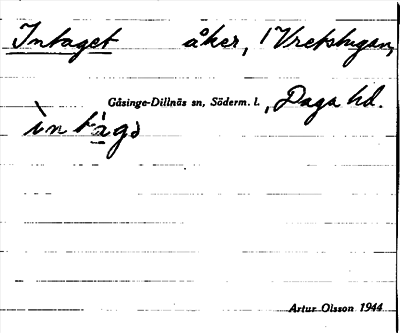 Intaget åker, 1 Vretstugan,
Gåsinge-Dillnäs sn, Söderm. l., Daga hd.
ìn tàgə
Artur Olsson 1944